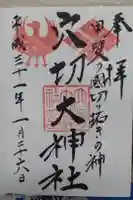 奉拝
甲斐の国切り拓きの神
穴切大神社
平成三十一年一月二十六日